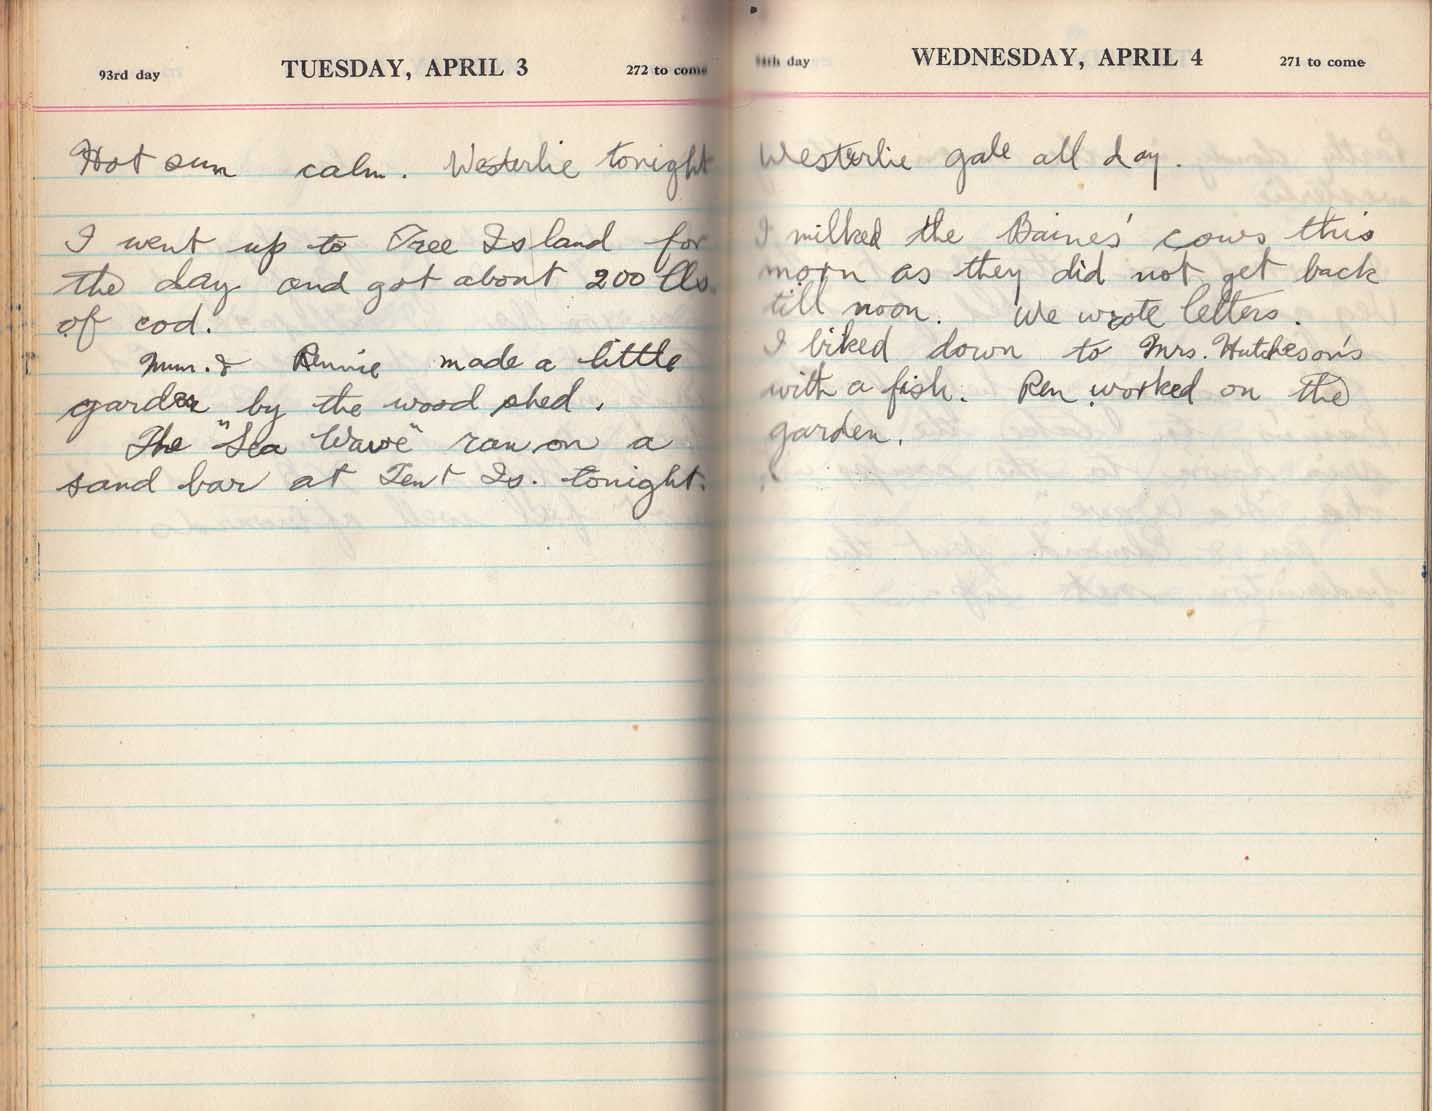 93rd day TUESDAY, APRIL 3 272 to come
Hot sun calm. Westerlie tonight
I went up to Tree Island for
the day and got about 200 lbs.
of cod.
Mum. & Rennie made a little
garden by the wood shed.
The "Sea Wave" ran on a
sand bar at Tent Is. tonight.
94th day WEDNESDAY, APRIL 4 271 to come
Westerlie gale all day.
I milked the Baines' cows this
morn as they did not get back
till noon. We wrote letters.
I biked down to Mrs. Hutcheson's
with a fish. Ren worked on the
garden.